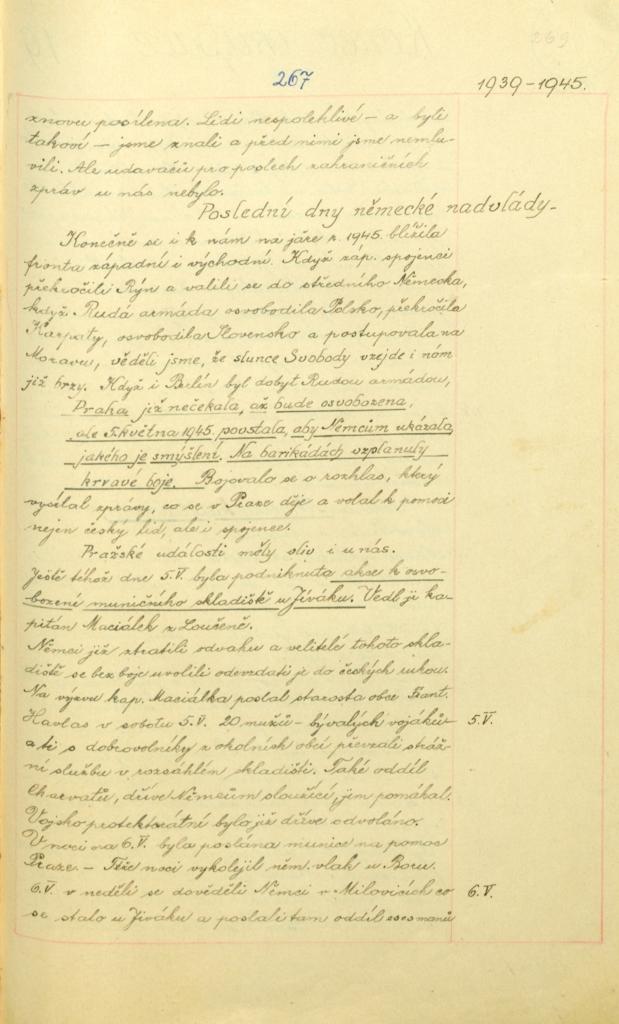 269
267
1939-1945.
znovu posílena. Lidi nespolehlivé - a byli
takoví - jsme znali a před nimi jsme nemlu-
vili. Ale udavačů pro poslech zahraničních
zpráv u nás nebylo.
Poslední dny německé nadvlády.
Konečně se i k nám na jaře r. 1945 blížila
fronta západní i východní. Když záp. spojenci
překročili Rýn a valili se do středního Německa,
když Rudá armáda osvobodila Polsko, překročila
Karpaty, osvobodila Slovensko a postupovala na
Moravu, věděli jsme, že slunce Svobody vzejde i nám
již brzy. Když i Berlín byl dobyt Rudou armádou,
Praha již nečekala, až bude osvobozena,
ale 5. května 1945 povstala, aby Němcům ukázala,
jakého je smýšlení. Na barikádách vzplanuly
krvavé boje. Bojovalo se o rozhlas, který
vysílal zprávy, co se v Praze děje a volal k pomoci
nejen český lid, ale i spojence.
Pražské události měly vliv i u nás.
Ještě téhož dne 5.V. byla podniknuta akce k osvo-
bození muničního skladiště u Jíváku. Vedl ji ka-
pitán Maciálek z Loučeně.
Němci již ztratili odvahu a velitelé tohoto skla-
diště se bez boje uvolili odevzdati je do českých rukou.
Na výzvu kap. Maciálka poslal starosta obce Frant.
Havlas v sobotu 5.V. 20 mužů - bývalých vojáků -
5.V.
a ti s dobrovolníky z okolních obcí převzali stráž-
ní službu v rozsáhlém skladišti. Také oddíl
Charvatů, dříve Němcům sloužící, jim pomáhal.
Vojsko protektorátní bylo již dříve odvoláno.
V noci na 6.V. byla poslána munice na pomoc
Praze. - Téže noci vykolejil něm. vlak u Boru.
6.V. v neděli se dověděli Němci v Milovicích co
6.V.
se stalo u Jíváku a poslali tam oddíl esesmanů